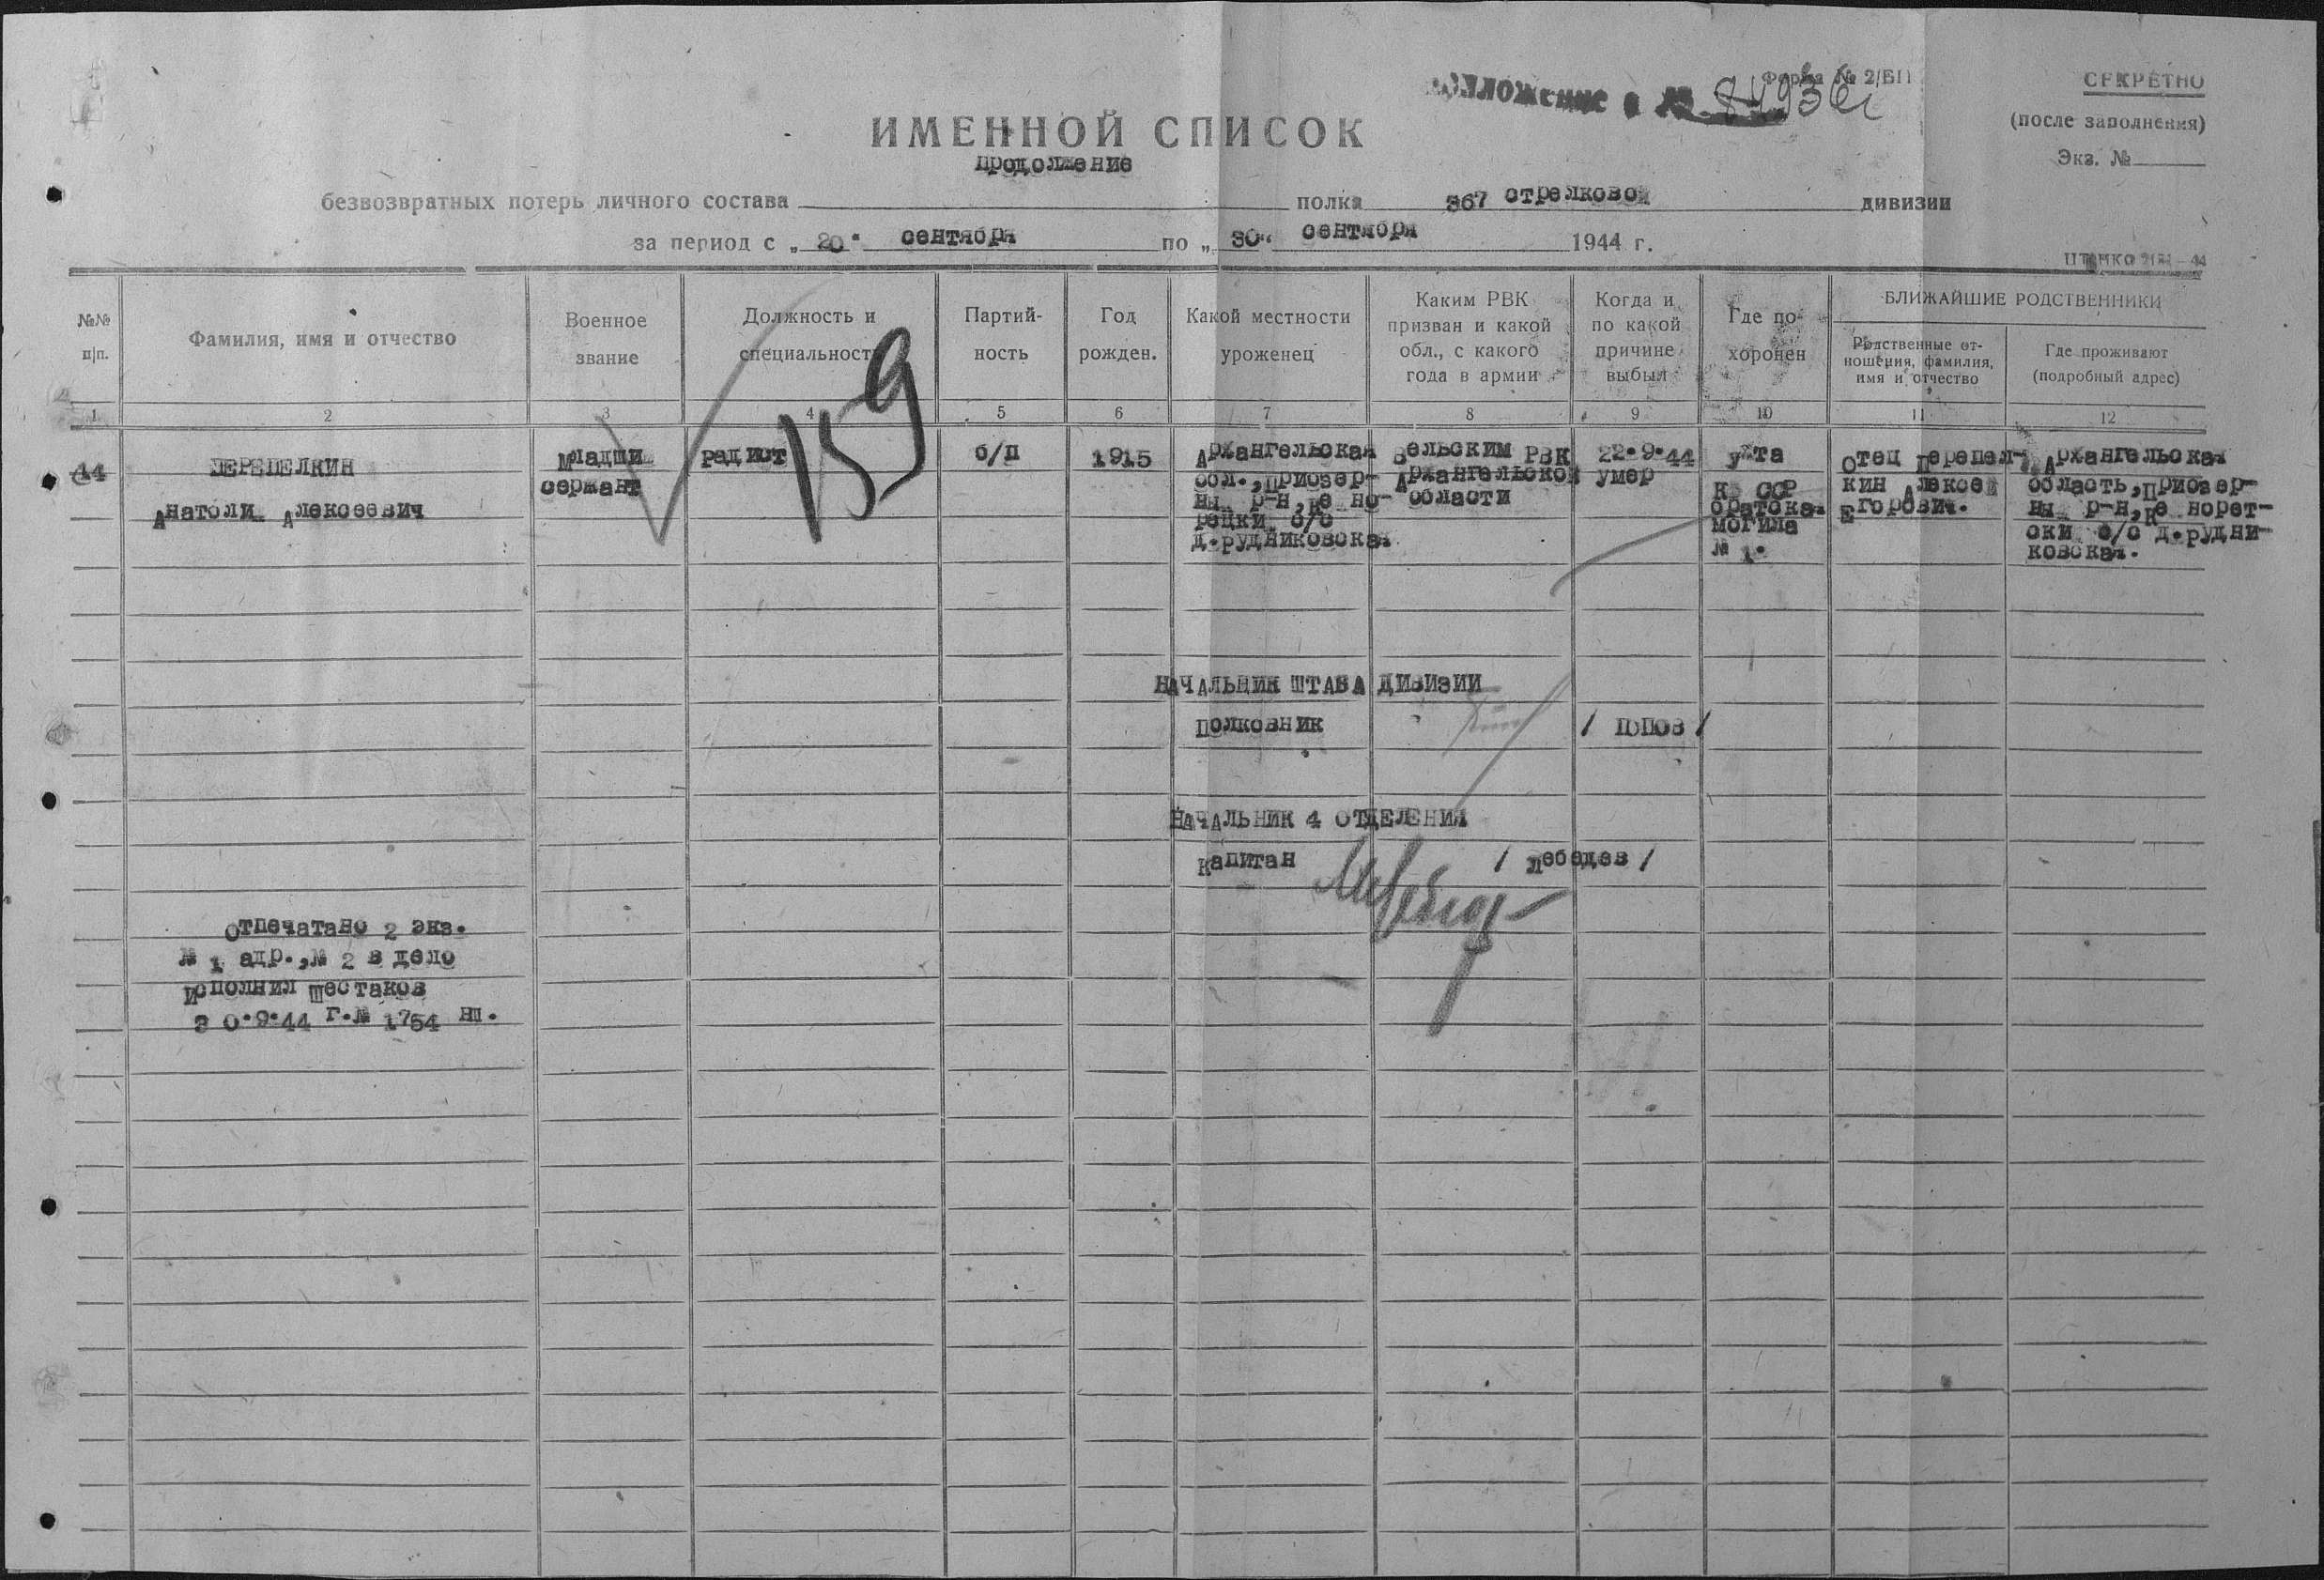 Форма № 2/БП
СЕКРЕТНО
(после заполнения)
Экз. №
ИМЕННОЙ СПИСОК
продолжение
безвозвратных потерь личного состава полка 367 стрелковой дивизии
за период с „ 20 " сентября по „ 30 " сентября 1944 г.
№№ п|п.
Фамилия, имя и отчество
Военное звание
Должность и специальность
Партий-
ность
Год рожден.
Какой местности уроженец
Каким РВК
призван и какой
обл., с какого
года в армии
Когда и
по какой
причине
выбыл
Где по-
хоронен
БЛИЖАЙШИЕ РОДСТВЕННИКИ
Родственные от-
ношения, фамилия,
имя и отчество
Где проживают
(подробный адрес)
1 2 3 4 5 6 7 8 9 10 11 12
159
14
ПЕРЕПЕЛКИН
Анатоли Алексеевич
Младши
сержант
радист
б/п
1915
Архангельская
обл., Приозер-
ны р-н, Ке но-
рецки с/с
д.Рудниковская
Вельским РВК
Архангельской
области
22.9.44
умер
Ухта
К ССР
братская
могила
№ 1.
Отец Перепел-
кин Алексей
Егорович.
Архангельская
область, Приозер-
ны р-н, Ке норет-
ски с/с д.Рудни-
ковская.
НАЧАЛЬНИК ШТАБА ДИВИЗИИ
Полковник / ПОПОВ /
НАЧАЛЬНИК 4 ОТДЕЛЕНИЯ
Капитан / Лебедев /
Отпечатано 2 экз.
№ 1 адр., № 2 в дело
Исполнил Шестаков
3 0.9.44 г. № 1754 нш.